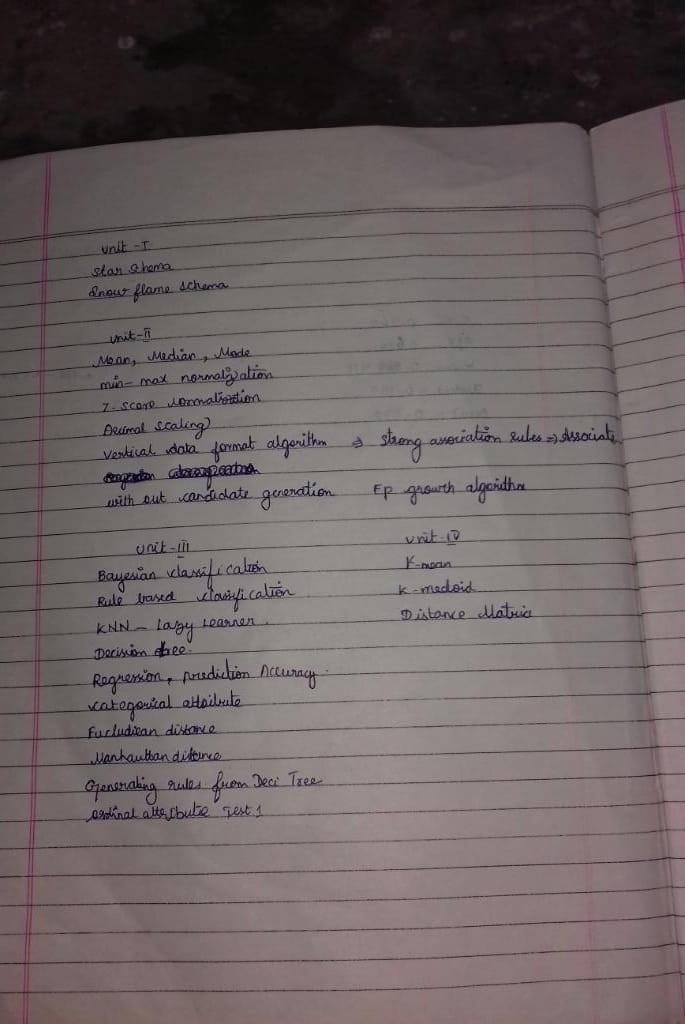 Unit - I
Star Shema
Snow flame schema
Unit-II
Mean, Median, Mode
min-max normalization
Z-score normalization
Decimal scaling
Vertical data format algorithm ⇒ strong association rules ⇒ Associate
with out candidate generation Fp growth algorithm
Unit-III
Bayesian classification
Rule based classification
KNN - Lazy Learner.
Decision tree.
Regression, prediction Accuracy.
categorical attribute
Eucludiean distance
Manhauttan distance
Generating rules from Deci Tree
ordinal attribute Test 1
Unit-IV
K-mean
K-medoid
Distance Matrix